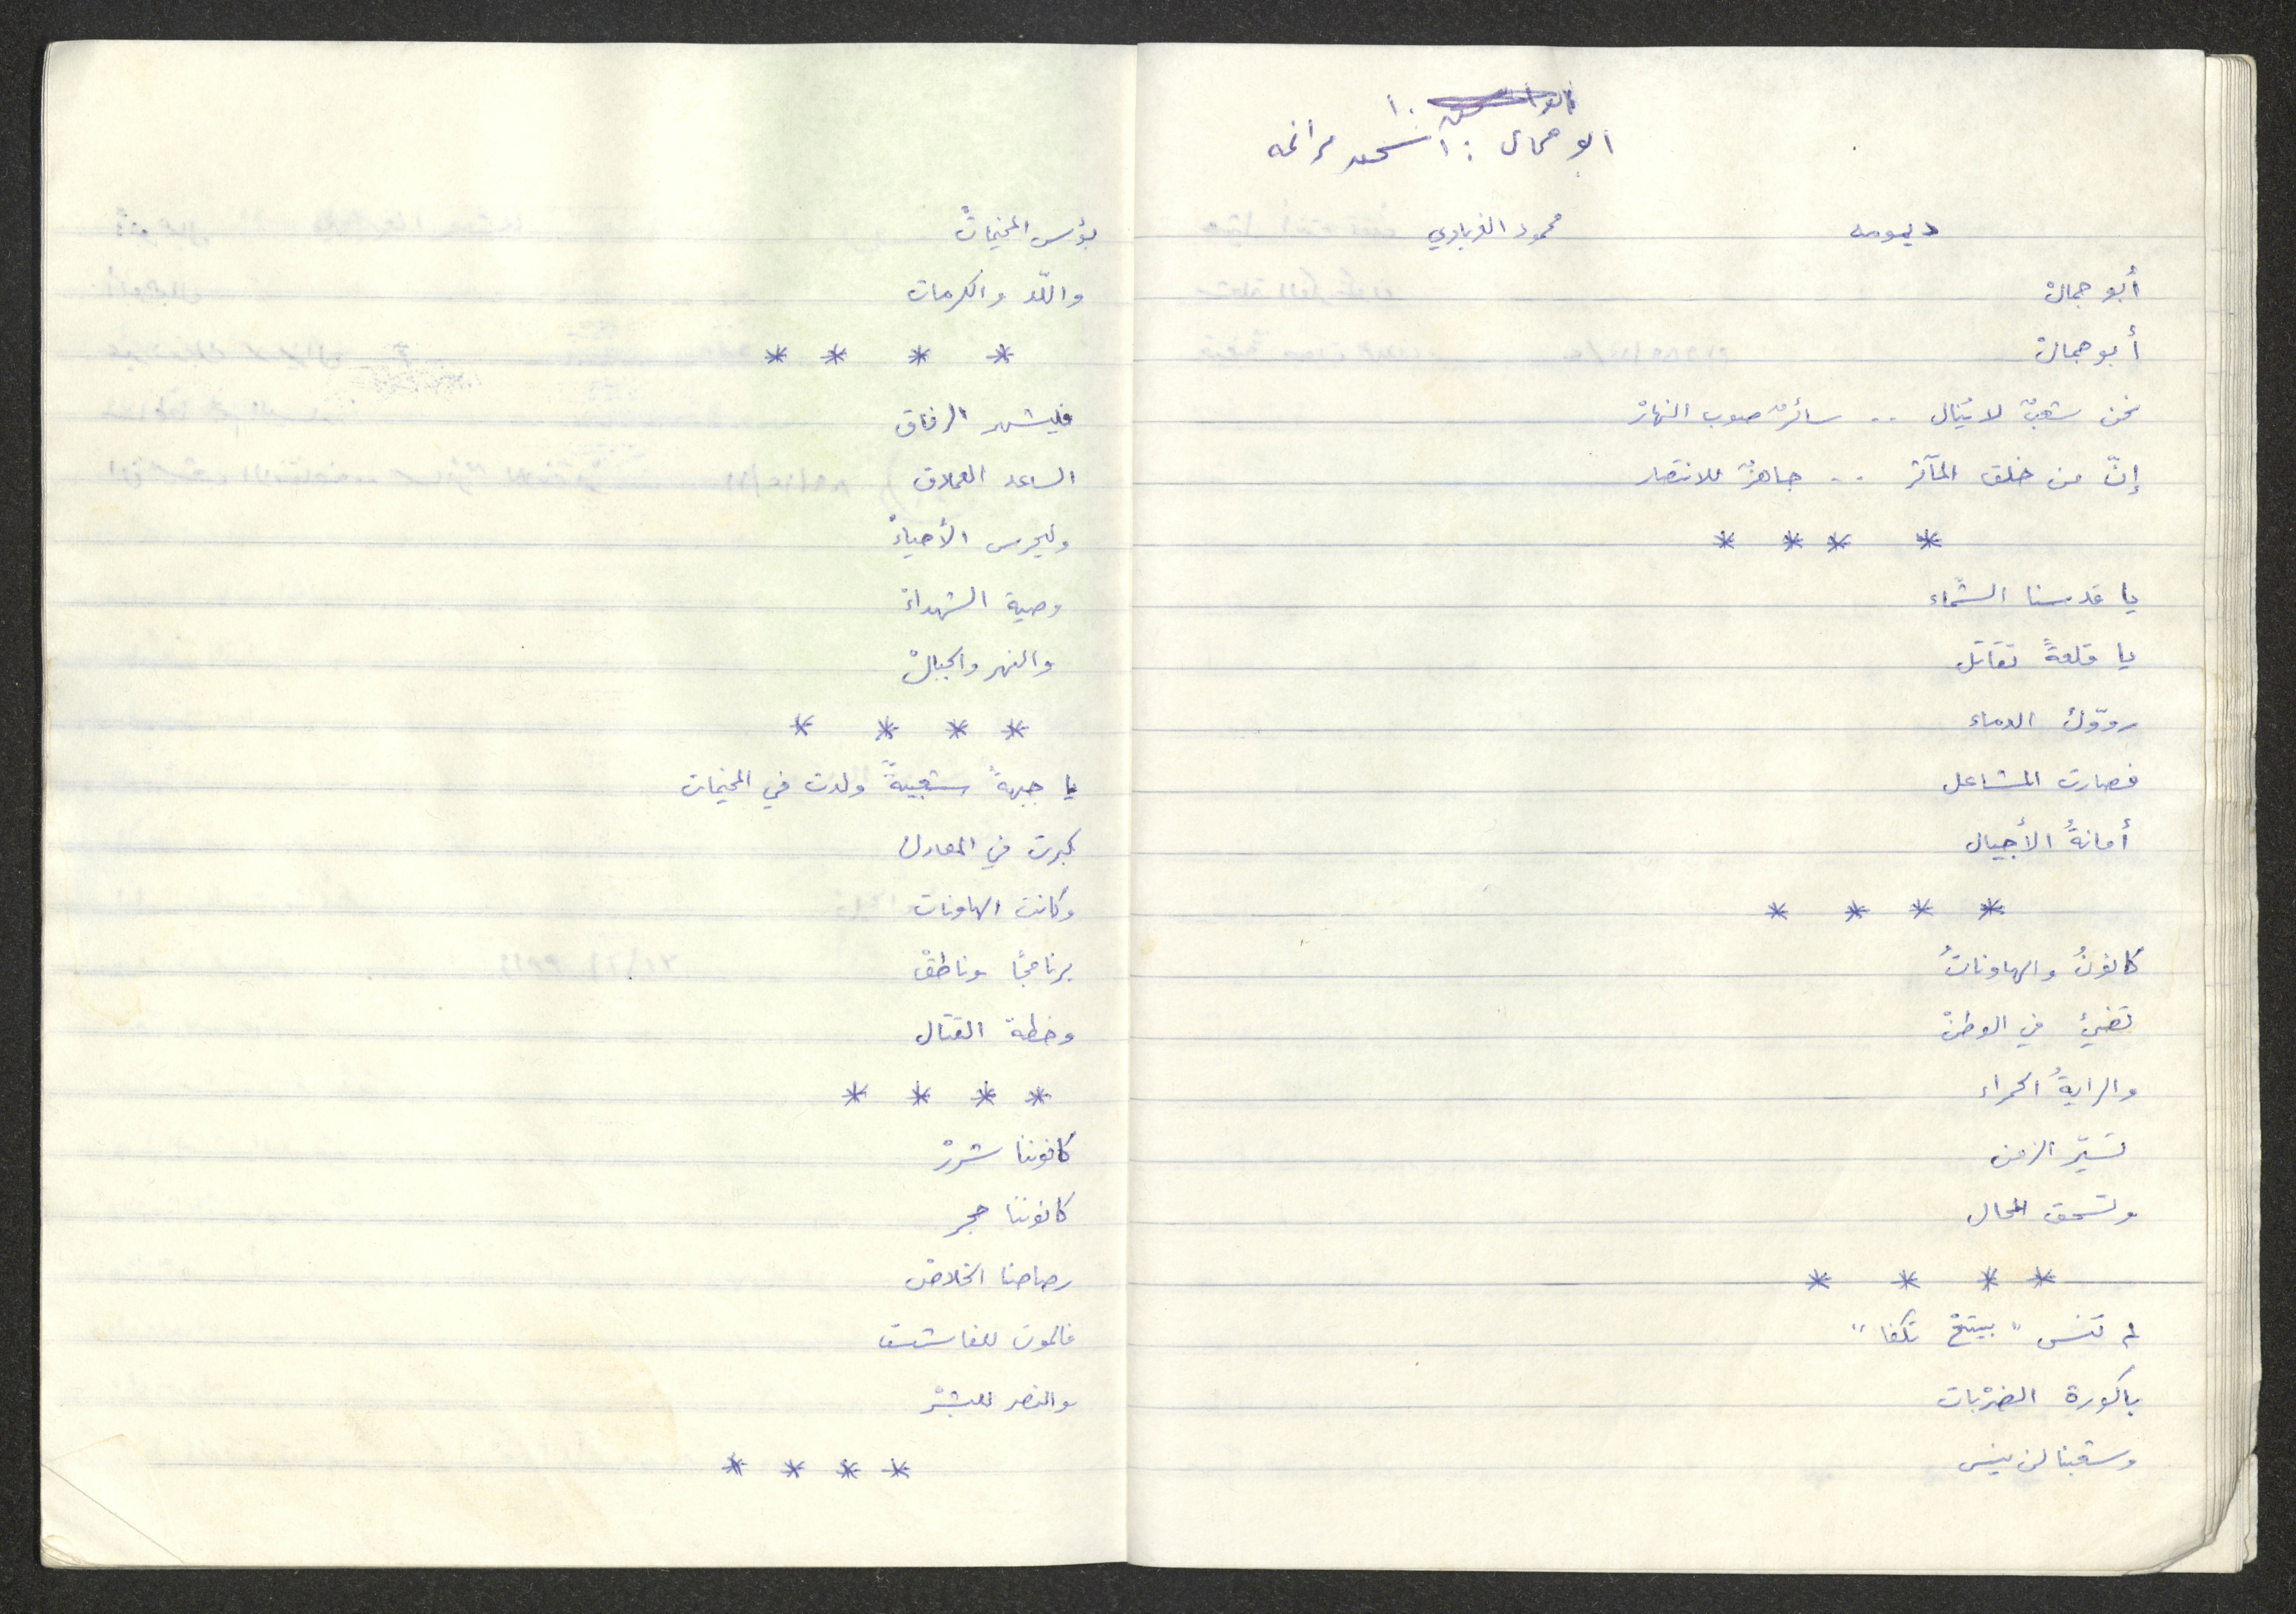 ديمومه محمود الغرباوي
أبو جمالْ
أبو جمالْ
نحن شعبٌ لا يُنال .. سائرٌ صوب النهارْ
إنّ من خلق المآثر .. جاهزٌ للانتصار
* * * *
يا قدسنا الشمّاء
يا قلعةً تقاتل
روّوك الدماء
فصارت المشاعل
أمانةُ الأجيال
* * * *
كانونُ والهاوناتُ
تضيئُ في الوطنْ
والرايةُ الحمراء
تسيّر الزمن
وتسحق المحال
* * * *
لم تنس " بيتحْ تكفا "
باكورة الضرْبات
وشعبنا لن ينسى
بؤس المخيماتْ
واللّد والكرمات
* * * *
فليشهر الرفاق
الساعد العملاق
وليحرس الأحياءْ
وصية الشهداءْ
والنهر والجبالْ
* * * *
يا جبهةً شعبيةً ولدت في المخيمات
كبرت في المعارك
وكانت الهاونات
برنامجًا وناطقْ
وخطة القتال
* * * *
كانوننا شررْ
كانوننا حجر
رصاصنا الخلاصْ
فالموت للفاشست
والنصر للبشرْ
* * * *